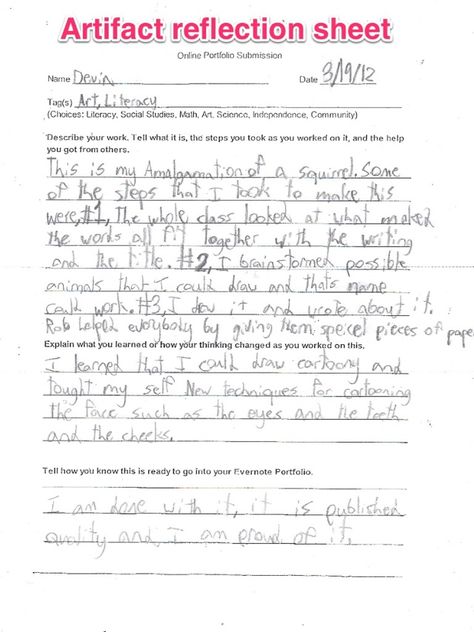 Artifact reflection sheet
Online Portfolio Submission
Name Devin Date 3/19/12
Tag(s) Art, Literacy
(Choices: Literacy, Social Studies, Math, Art, Science, Independence, Community)
Describe your work. Tell what it is, the steps you took as you worked on it, and the help
you got from others.
This is my Amalgamation of a squirrel. Some
of the steps that I took to make this
were, #1, The whole class looked at what maked
the words all fit together with the writing
and the title. #2, I brainstormed possible
animals that I could draw and thats name
could work. #3, I drew it and wrote about it.
Rob helped everybody by giving them specel pieces of paper
Explain what you learned or how your thinking changed as you worked on this.
I learned that I could draw cartoony and
tought my self New techniques for cartooning
the face such as the eyes and the teeth
and the cheeks.
Tell how you know this is ready to go into your Evernote Portfolio.
I am done with it, it is published
quality and I am proud of it.